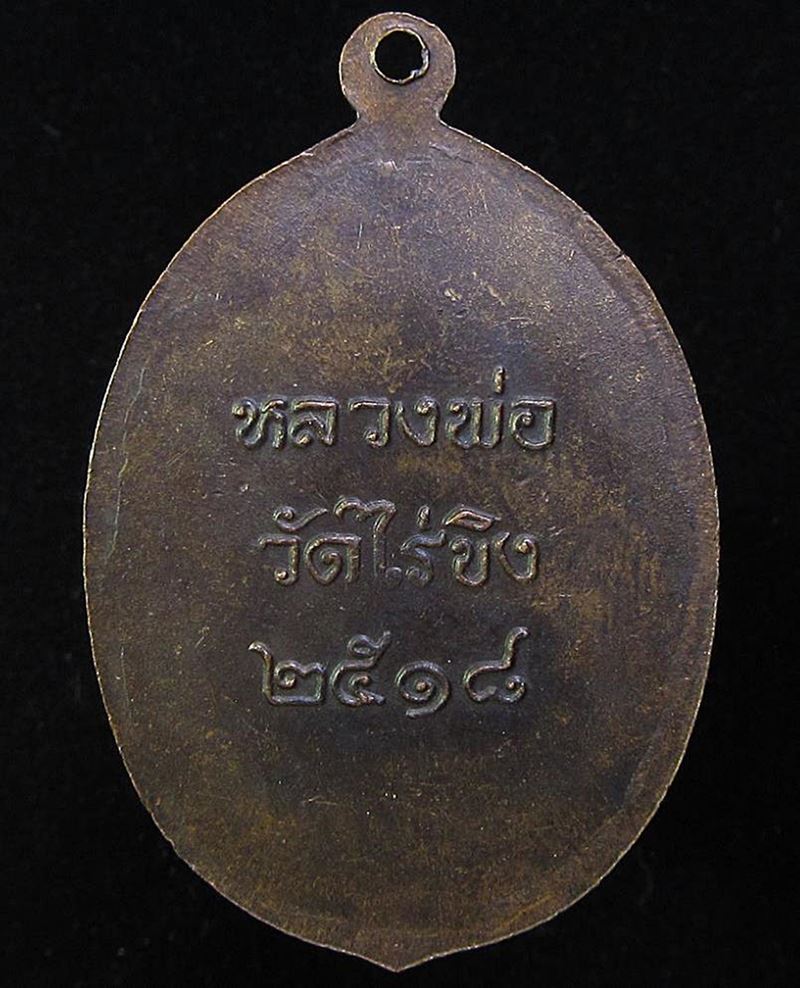 หลวงพ่อ
วัดไร่ขิง
๒๕๑๘